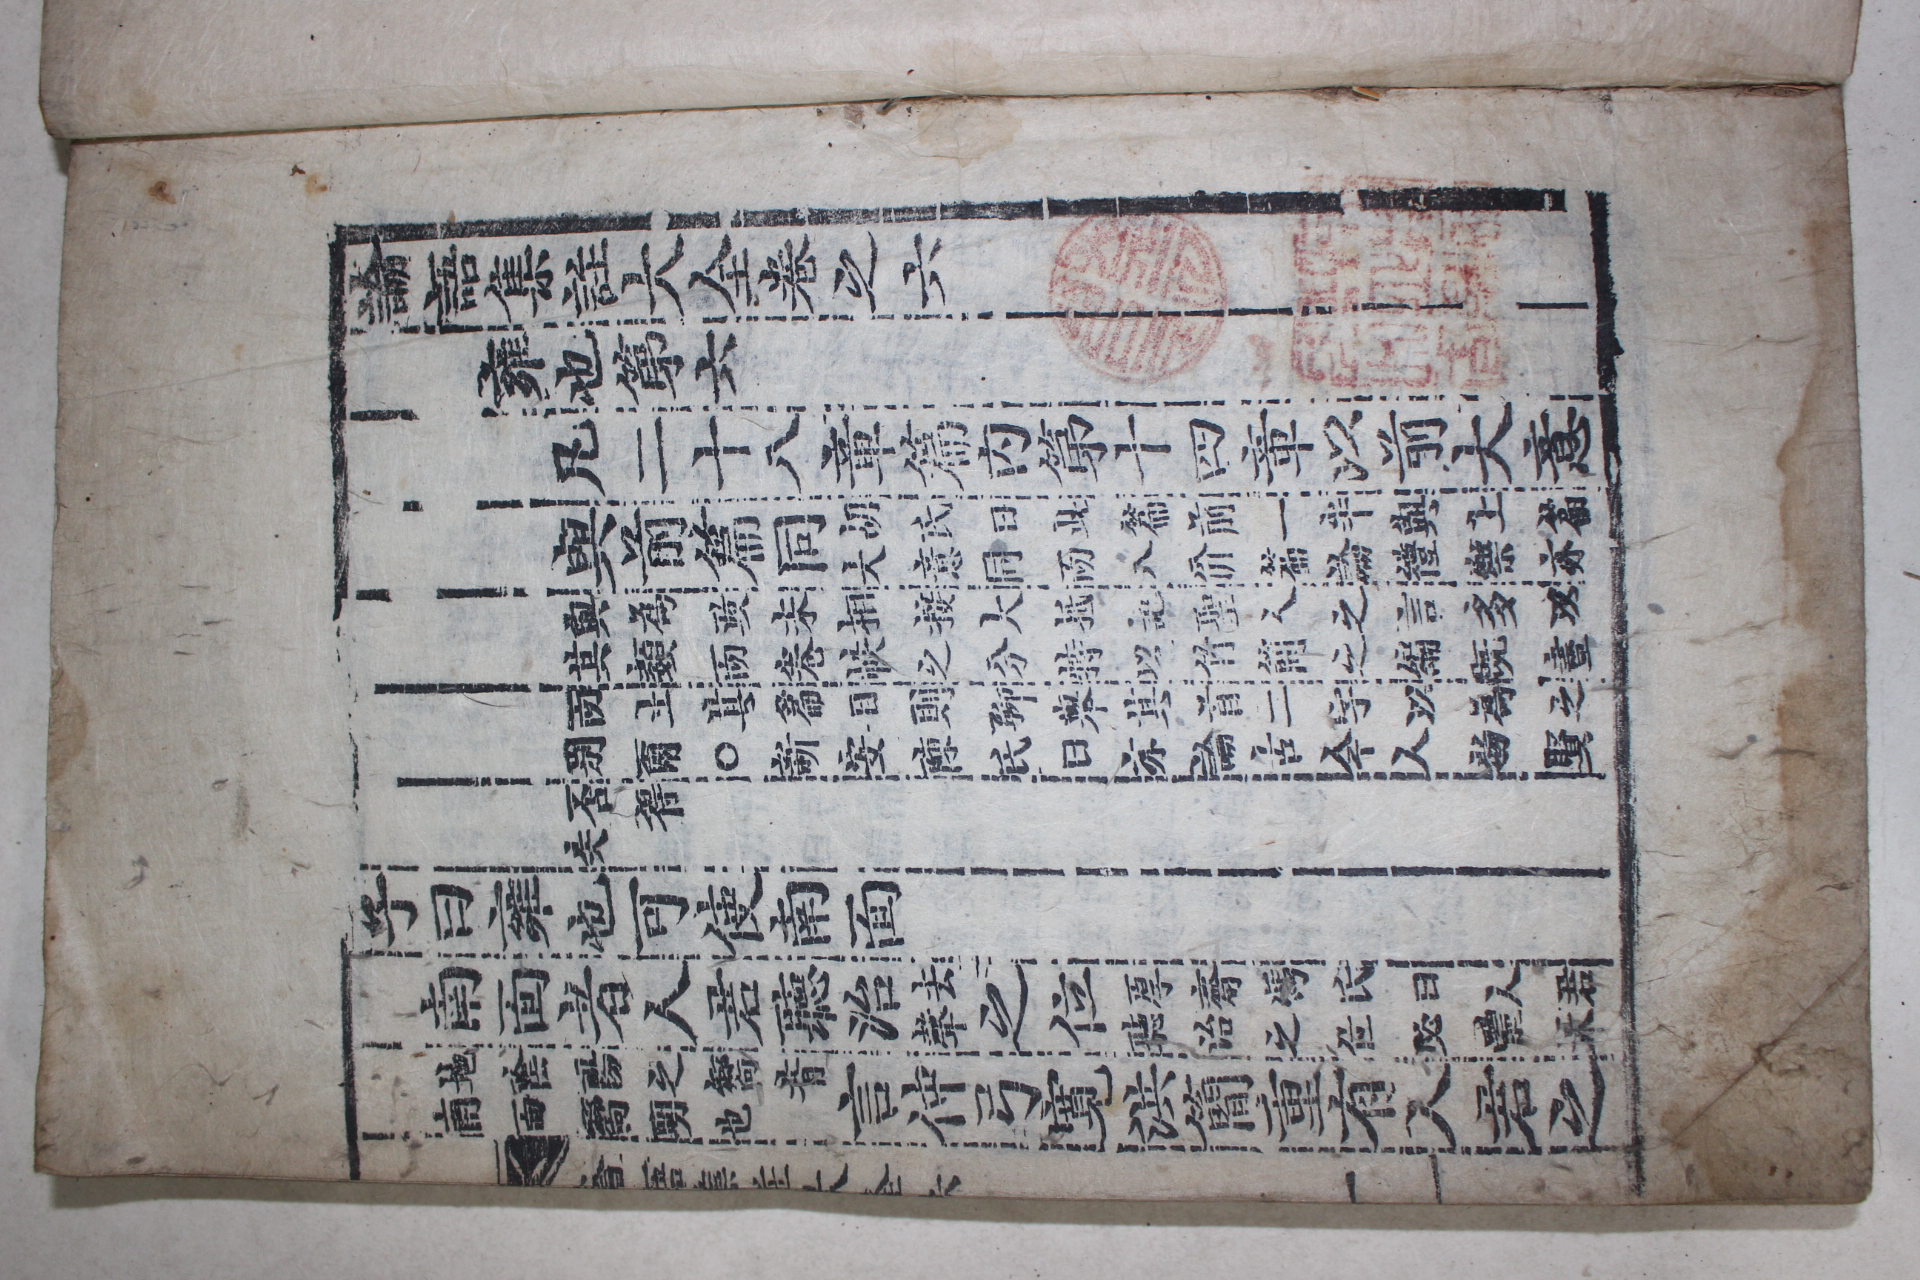 論語集註大全卷之六
雍也第六
凡二十八章篇內第十四章以前大意
與前篇同
胡氏曰此篇前一半與上篇
大意同而八佾篇論禮樂亦
與爲政末相接大抵記聖人之言多以
其類而卷帙之分特以竹簡之編旣盡
而止其篇目則聊擧其首二字以爲之
別爾○新安陳氏曰亦論古今人賢
否得
失
子曰雍也可使南面
南面者人君聽治
去
聲
之位
厚齋馮氏曰人君
聽治之位必體天
地陰陽之嚮背
南面明也
言仲弓寬洪簡重有人君之
論語集註大全六
一